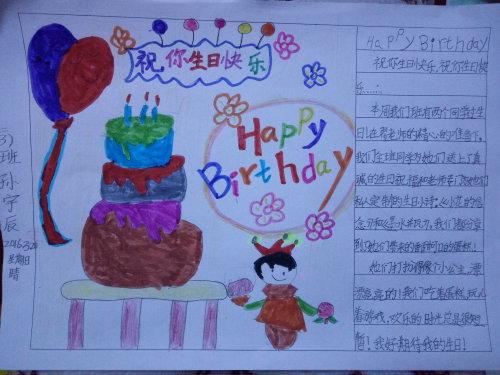 祝你生日快乐
Happy
Birthday
3)
班
孙
宇
辰
星期日
晴
Happy Birthday
祝你生日快乐,祝你生日快
乐……
本周我们班有两个同学过生
日!在老师的精心的准备下,
我们全班同学为她们送上了真
诚的生日祝福和老师专门为她们
私人定制的生日
她们打扮得像个小公主,漂
漂亮亮的!我们吃着蛋糕,玩
着游戏,欢乐的时光总是很短
暂!我好期待我的生日!